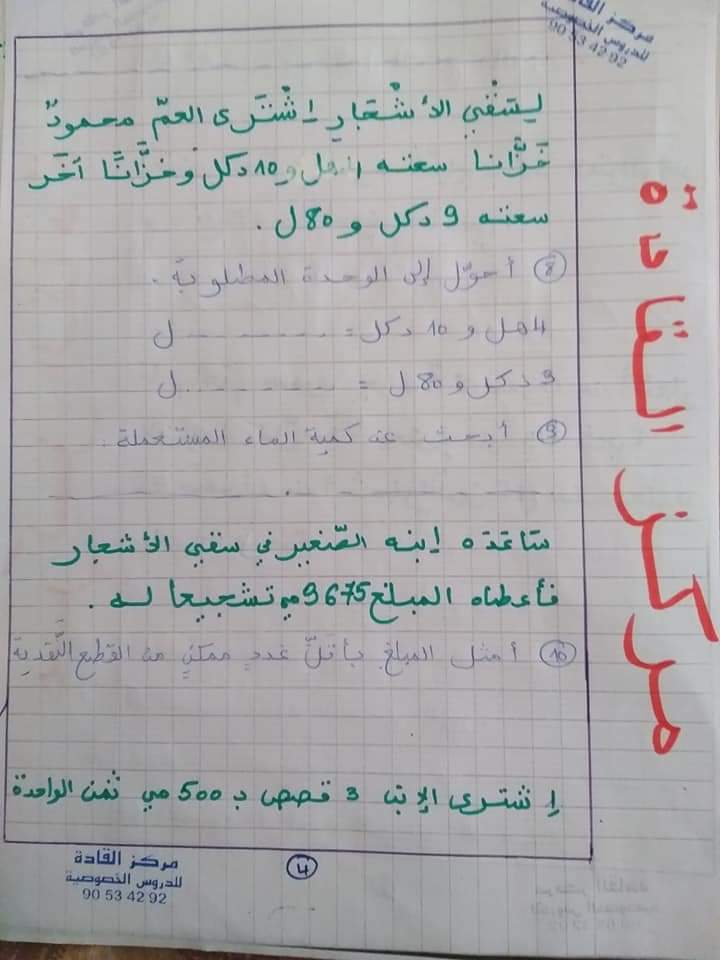 مركز القادة
للدروس الخصوصية
90 53 42 92
ليسقي الأشجار اشترى العمّ محمودٌ
خزّانا سعته 4هل و 10 دكل وخزّانًا آخر
سعته 9 دكل و 80 ل.
8 أحوّل إلى الوحدة المطلوبة.
4هل و 10 دكل = ........ ل
9 دكل و 80 ل = ........ ل
9 أبحث عن كمية الماء المستعملة.
ساعده ابنه الصّغير في سقي الأشجار
فأعطاه المبلغ 9675 مي تشجيعا له.
10 أمثل المبلغ بأقلّ عددٍ ممكنٍ من القطع النّقدية
اشترى الابن 3 قصص بـ 500 مي ثمن الواحدة
4
مركز القادة
للدروس الخصوصية
90 53 42 92
مركز القادة